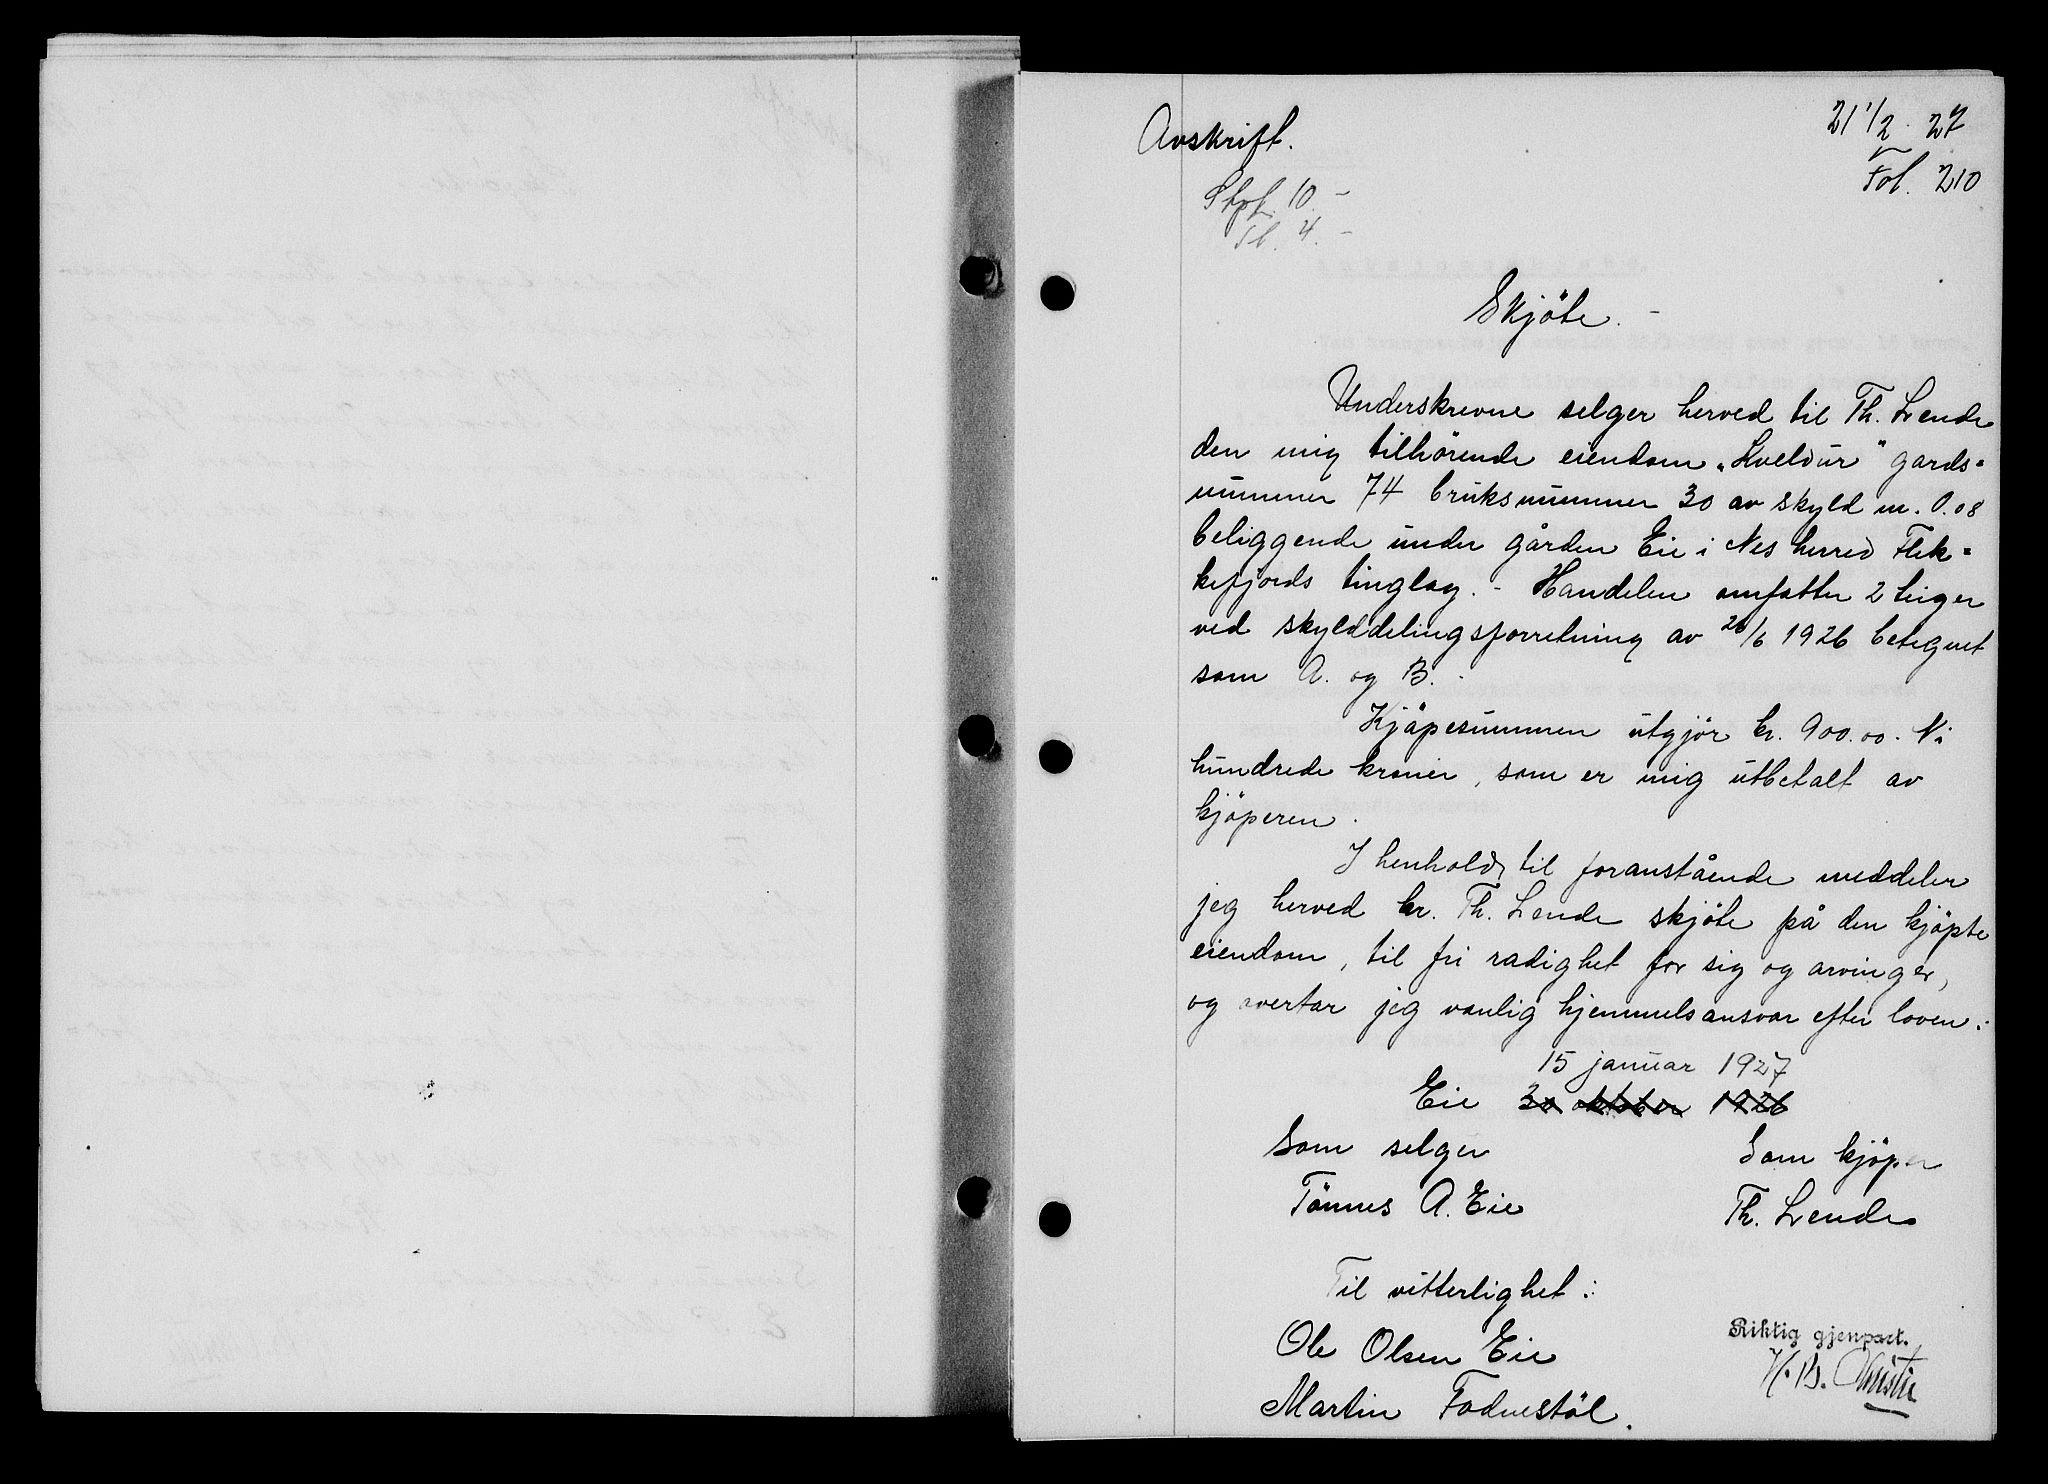 Avskrift.
21 1/2 27
Fol. 210
Stpl. 10. –
Tl. 4. –
Skjöte. –
Underskrevne selger herved til Th. Lende
den mig tilhörende eiendom „Kveldur" gards=
nummer 74 bruksnummer 30 av skyld m. 0.08
beliggende under gården Eie i Nes herred Flek=
kefjords tinglag. – Handelen omfatter 2 teiger
ved skylddelingsforretning av 26/6 1926 betegnet
som A. og B. –
Kjöpesummen utgjör kr. 900.00. Ni
hundrede kroner, som er mig utbetalt av
kjöperen.
I henhold til foranstående meddeler
jeg herved hr. Th. Lende skjöte på den kjöpte
eiendom, til fri radighet for sig og arvinger,
og overtar jeg vanlig hjemmelsansvar efter loven.
15 januar 1927
Eie 30 oktober 1926
Som selger
Som kjöper
Tönnes A. Eie
Th. Lende
Til vitterlighet:
Ole Olsen Eie
Martin Fodnestöl.
Riktig gjenpart.
H. B. Christie